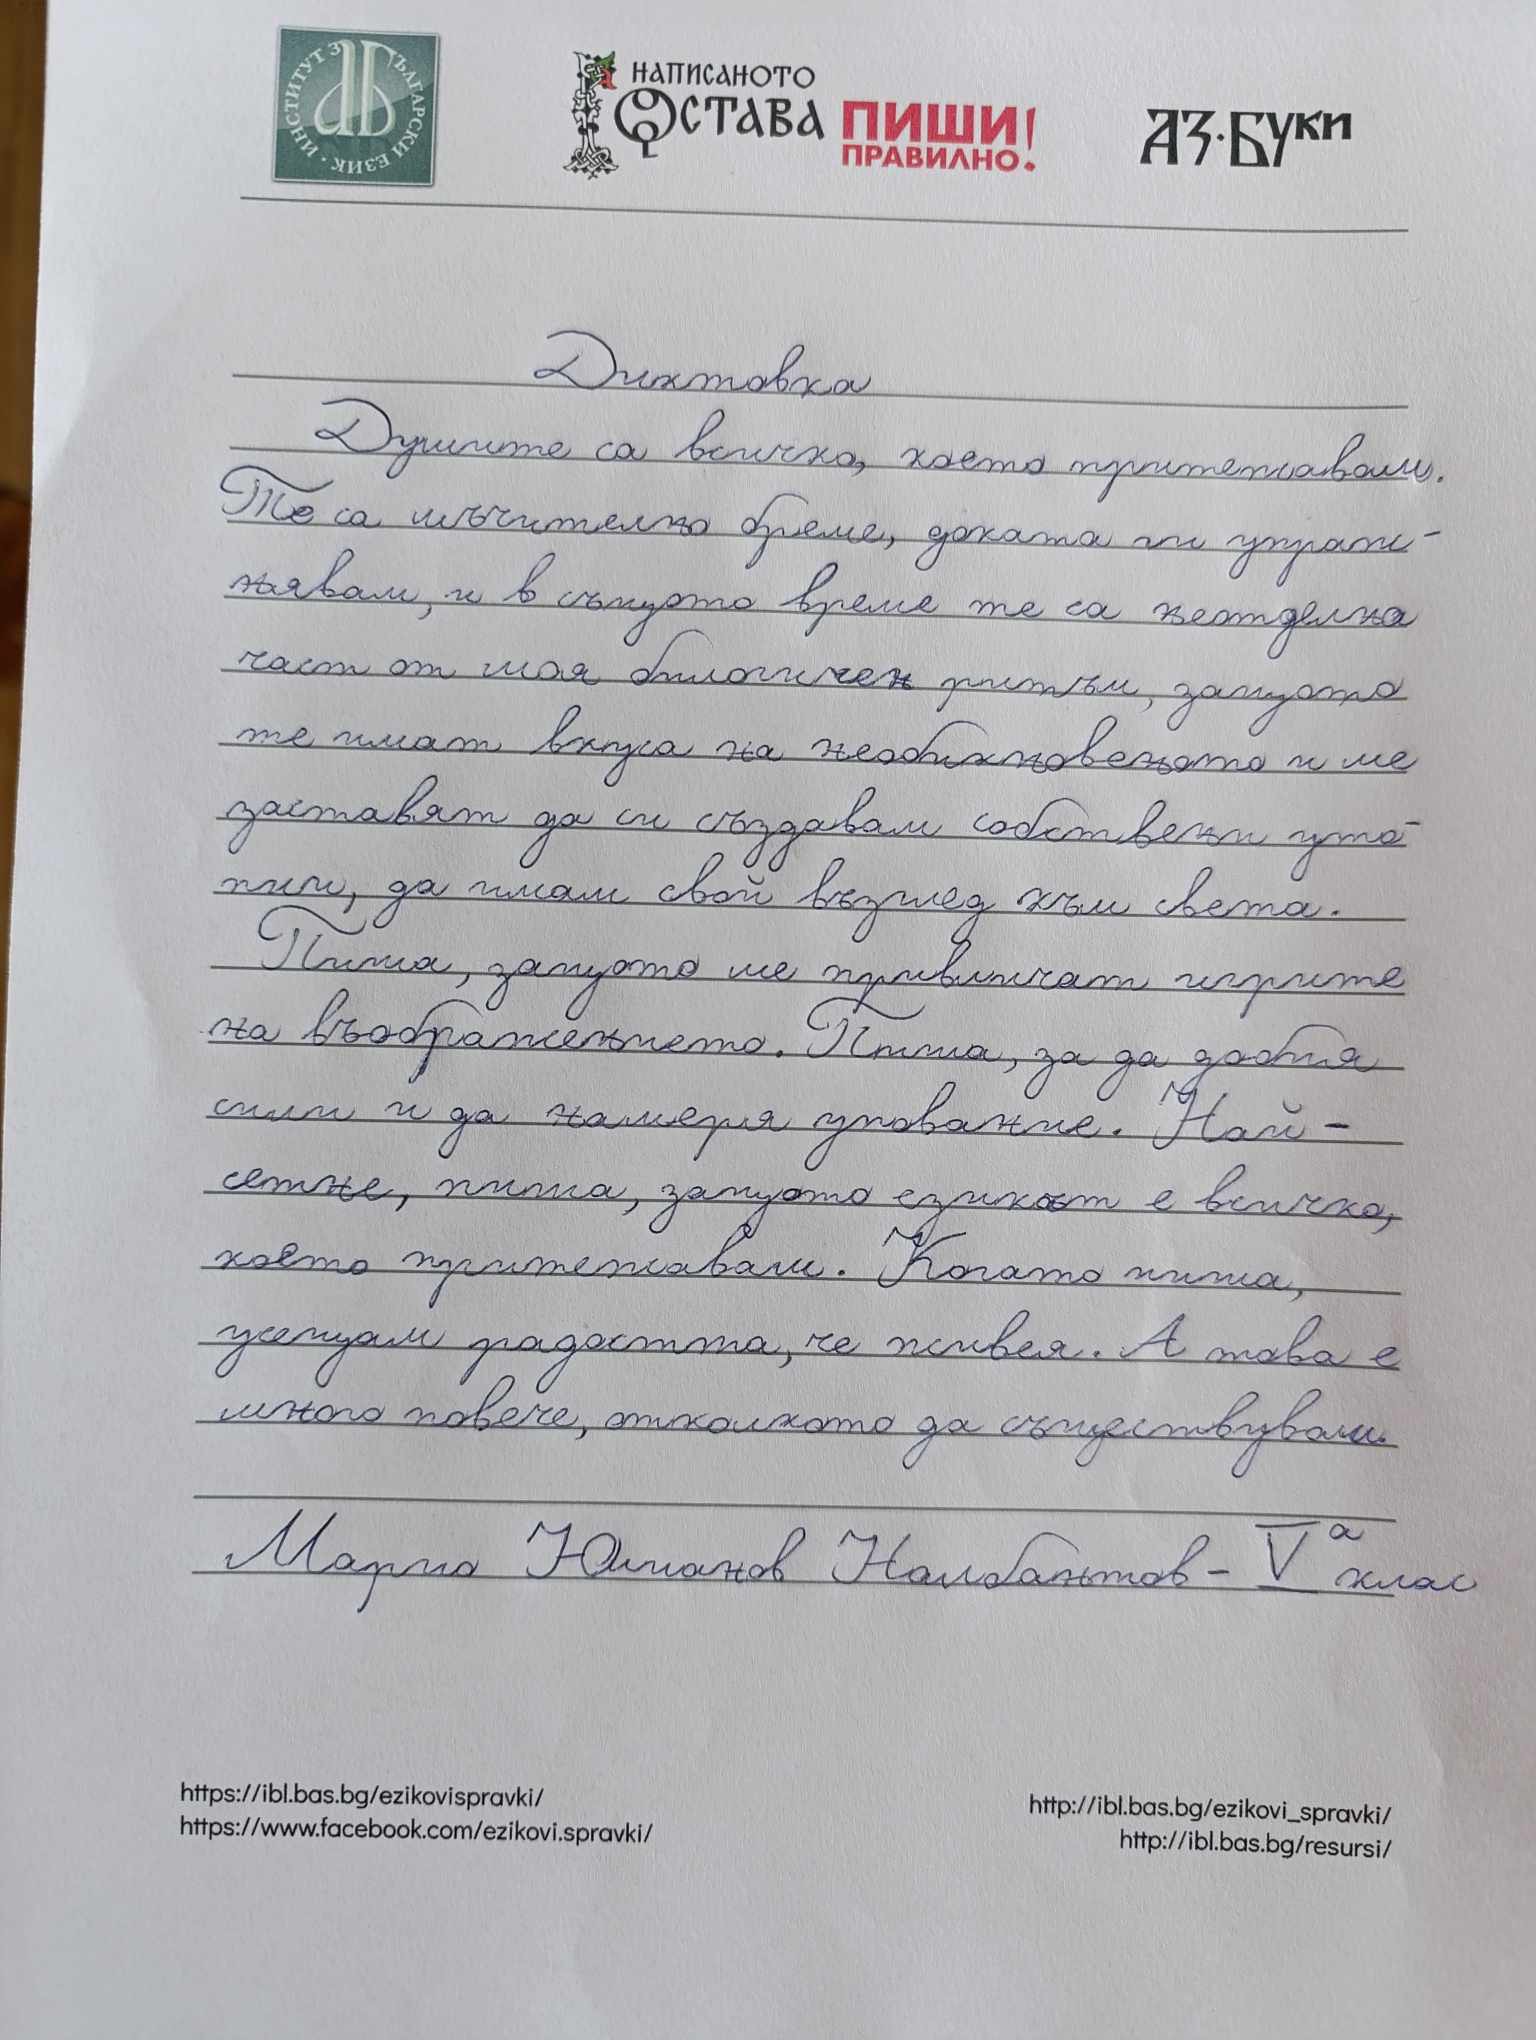 ИНСТИТУТ ЗА БЪЛГАРСКИ ЕЗИК
НАПИСАНОТО
ОСТАВА
ПИШИ
ПРАВИЛНО!
АЗ·БУКИ
Диктовка
Думите са всичко, което притежавам.
Те са мъчително бреме, докато ги упраж-
нявам, и в същото време те са неотделна
част от моя биологичен ритъм, защото
те имат вкуса на необикновеното и ме
заставят да си създавам собствени уто-
пии, да имам свой възглед към света.
Пиша, защото ме привличат игрите
на въображението. Пиша, за да добия
сили и да намеря упование. Най-
сетне, пиша, защото езикът е всичко,
което притежавам. Когато пиша,
усещам радостта, че живея. А това е
много повече, отколкото да съществувам.
Марио Юлианов Налбантов - V а клас
https://ibl.bas.bg/ezikovispravki/
https://www.facebook.com/ezikovi.spravki/
http://ibl.bas.bg/ezikovi_spravki/
http://ibl.bas.bg/resursi/